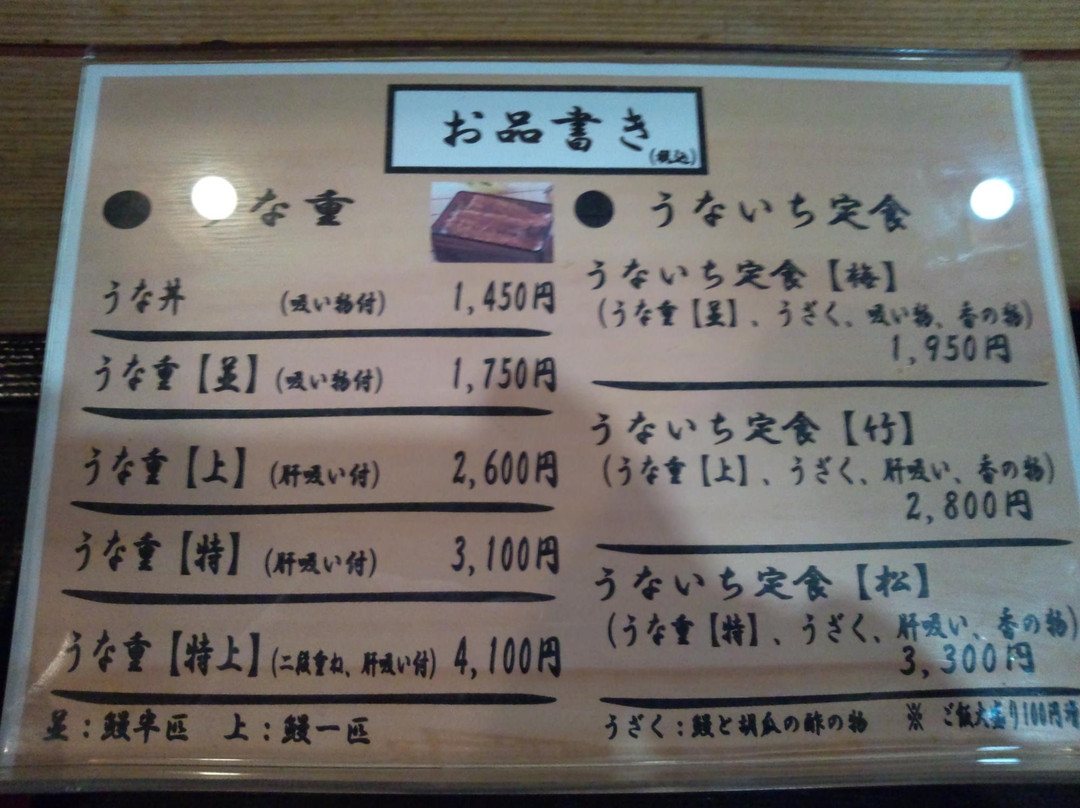 お品書き
(税込)
な重
うな丼 (吸い物付) 1,450円
うな重【並】(吸い物付) 1,750円
うな重【上】(肝吸い付) 2,600円
うな重【特】(肝吸い付) 3,100円
うな重【特上】(二段重ね、肝吸い付) 4,100円
並:鰻半匹 上:鰻一匹
うないち定食
うないち定食【梅】
(うな重【並】、うざく、吸い物、香の物)
1,950円
うないち定食【竹】
(うな重【上】、うざく、肝吸い、香の物)
2,800円
うないち定食【松】
(うな重【特】、うざく、肝吸い、香の物)
3,300円
うざく:鰻と胡瓜の酢の物 ※ ご飯大盛り100円増